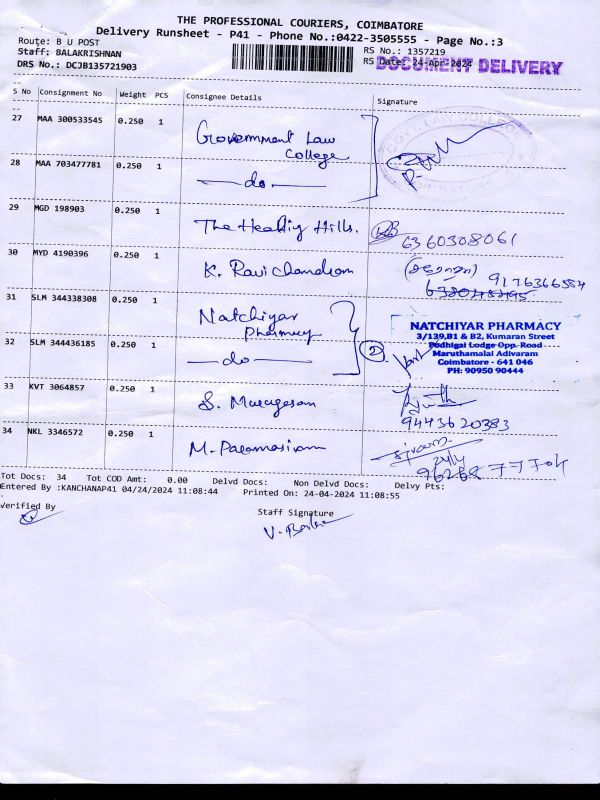 THE PROFESSIONAL COURIERS, COIMBATORE
Delivery Runsheet - P41 - Phone No.:0422-3505555 - Page No.:3
Route: B U POST
RS No.: 1357219
Staff: BALAKRISHNAN
RS Date: 24-Apr-2024
DOCUMENT DELIVERY
DRS No.: DCJB135721903
S No Consignment No Weight PCS Consignee Details Signature
27 MAA 300533545 0.250 1 Government Law College
GOVT. LAW COLLEGE
COIMBATORE
28 MAA 703477781 0.250 1 — do —
29 MGD 198903 0.250 1 The Healing Hills. 6360308061
30 MYD 4190396 0.250 1 K. Ravichandran 9176366584
31 SLM 344338308 0.250 1 Natchiyar Pharmacy
NATCHIYAR PHARMACY
3/139,B1 & B2, Kumaran Street
Podhigai Lodge Opp. Road
Maruthamalai Adivaram
Coimbatore - 641 046
PH: 90950 90444
32 SLM 344436185 0.250 1 — do — 2
33 KVT 3064857 0.250 1 S. Murugesan
9443620383
34 NKL 3346572 0.250 1 M. Paramasivam
24/4
Tot Docs: 34 Tot COD Amt: 0.00 Delvd Docs: Non Delvd Docs: Delvy Pts:
Entered By :KANCHANAP41 04/24/2024 11:08:44 Printed On: 24-04-2024 11:08:55
Verified By
Staff Signature